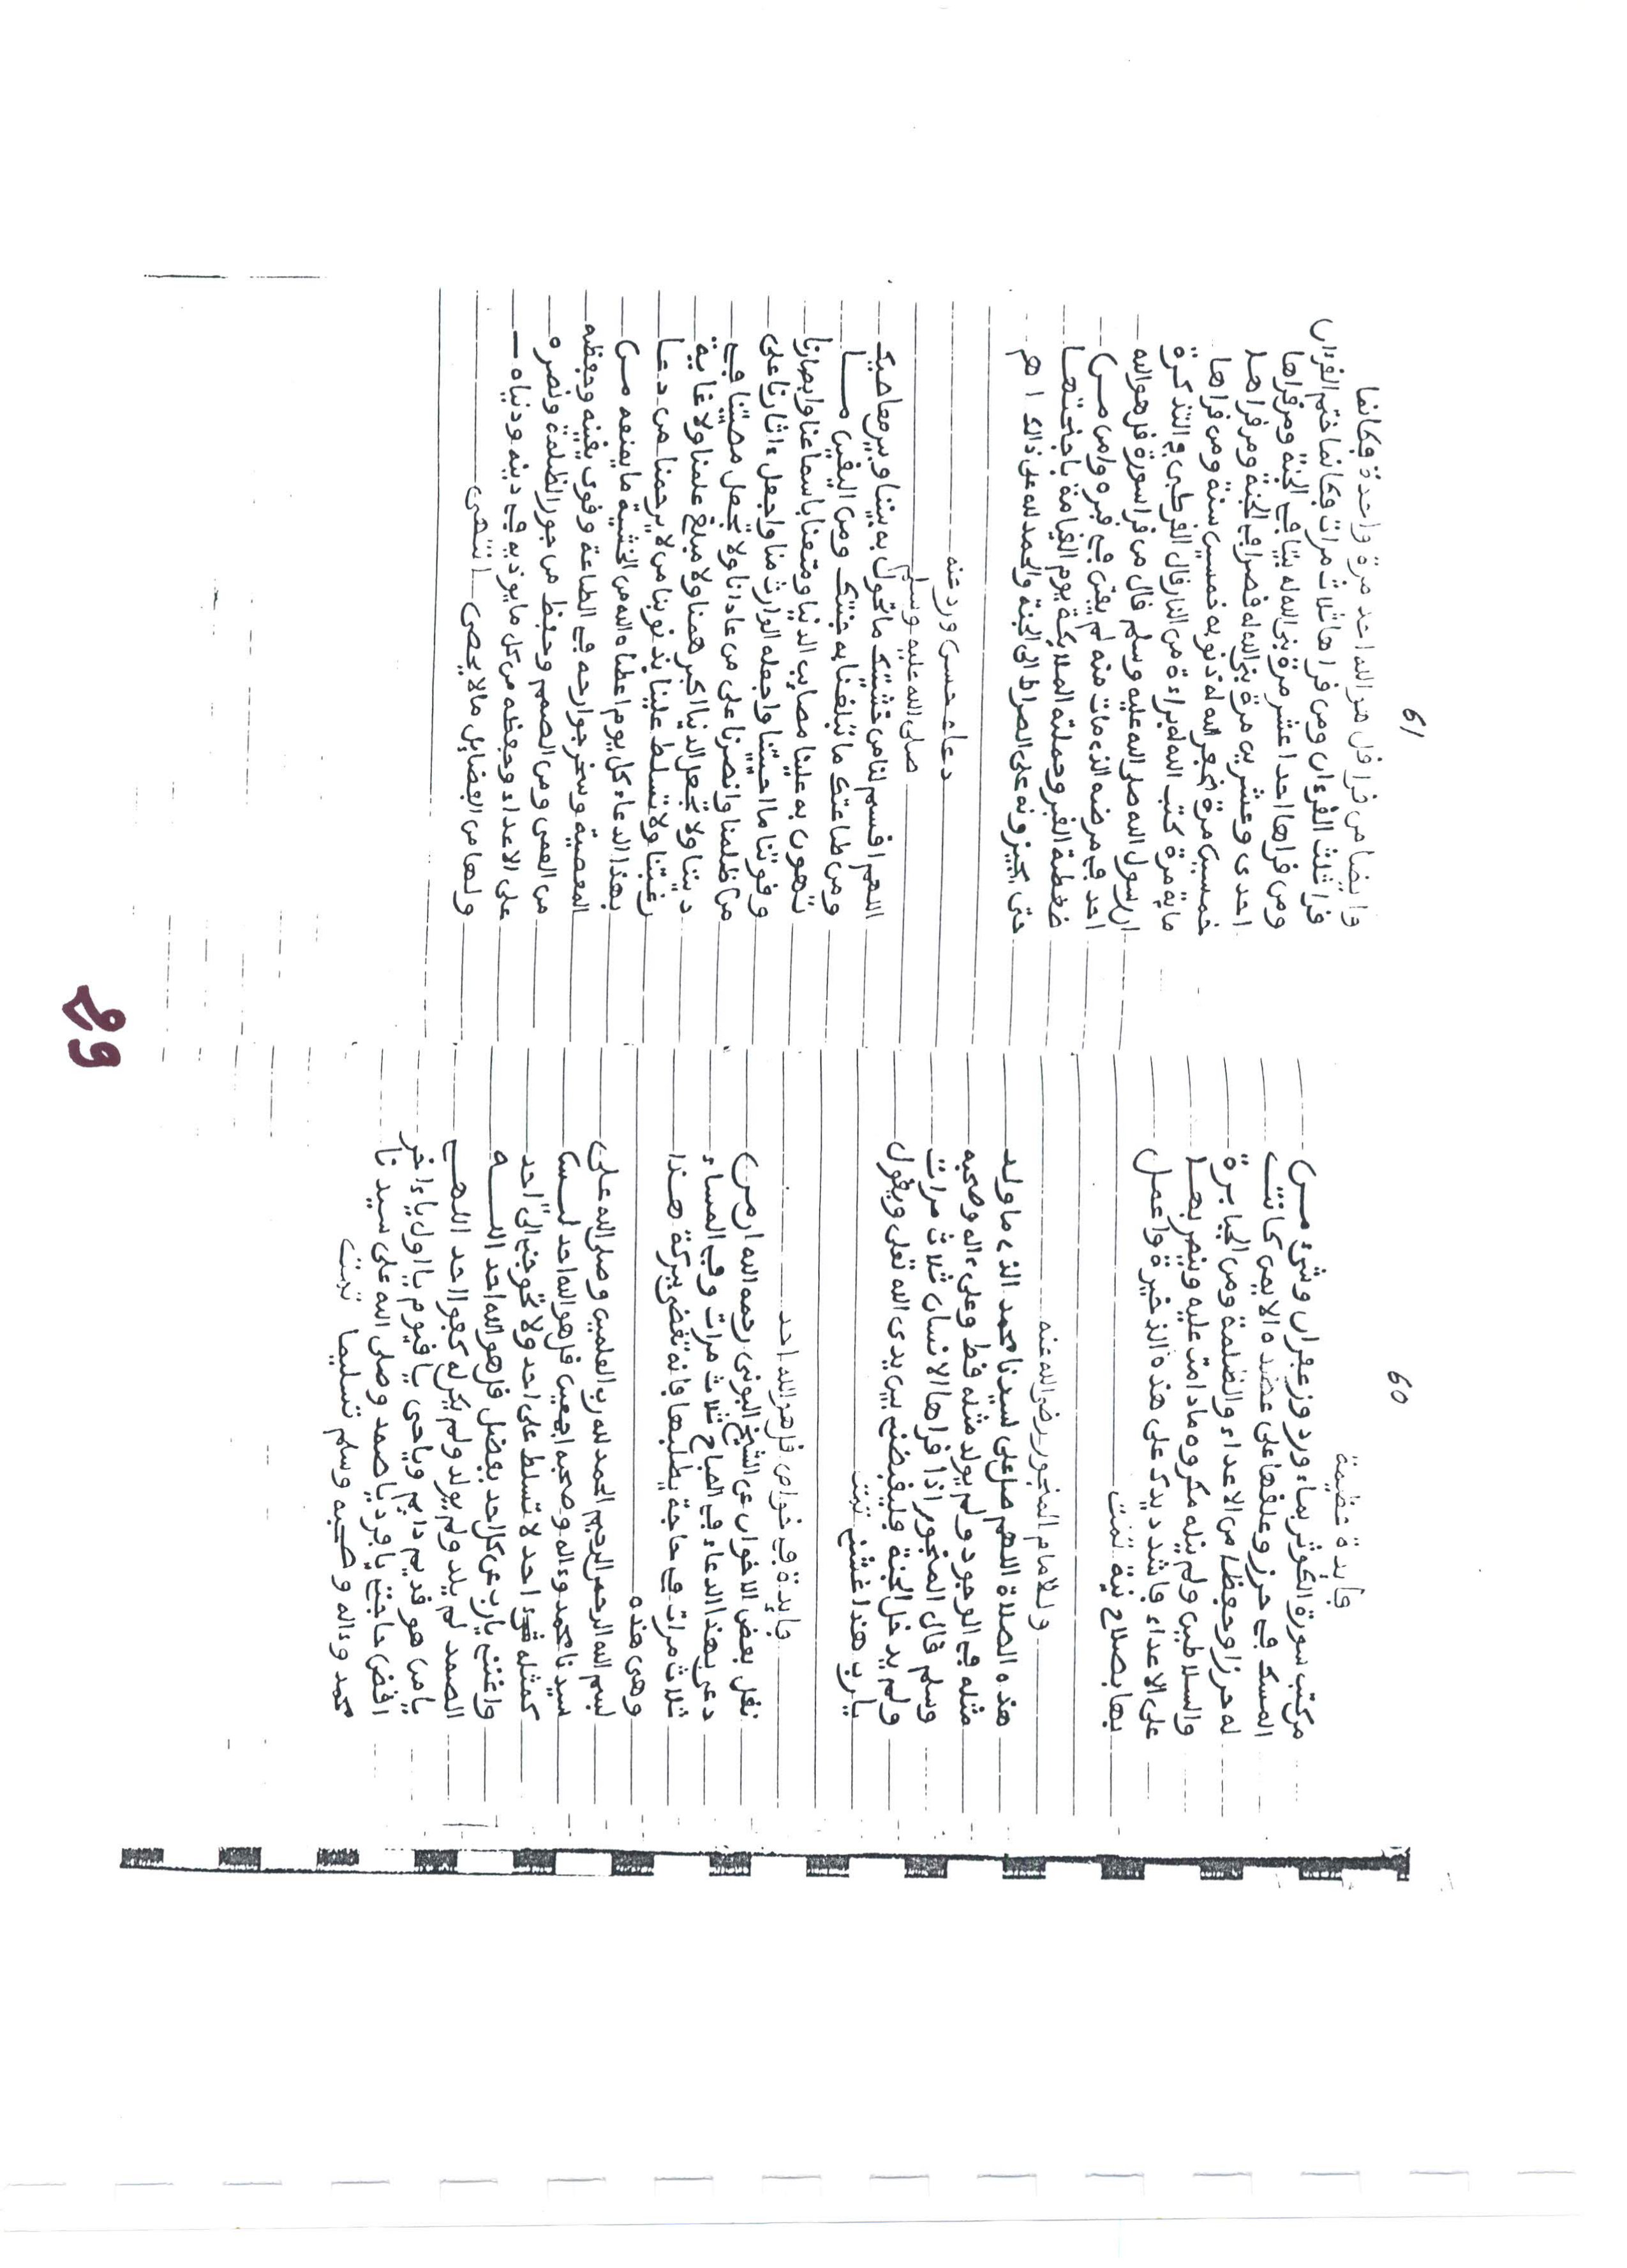 60
فايدة عظيمة
من كتب سورة الكوثر بماء ورد وزعفران وشئ من
المسك في حرز وعلقها على عضده الايمن كانت
له حرزا وحفظا من الاعداء والظلمة ومن الجبابرة
والسلاطين ولم ينله مكروه ما دامت عليه وينصر بها
على الاعداء فاشدد يدك على هذه الذخيرة واعمل
بها بصلاح نية تمت
وللامام المنجور رضي الله عنه
هذه الصلاة اللهم صل على سيدنا محمد الذي ما ولد
مثله في الوجود ولم يولد مثله قط وعلى ءاله وصحبه
وسلم قال المنجور اذا قراها الانسان ثلاث مرات
ولم يدخل الجنة فليقبضني بين يدي الله تعلى ويقول
يا رب هذا غشني تمت
فايدة في خواص قل هو الله احد
نقل بعض الاخوان عن الشيخ البوني رحمه الله ان من
دعى بهذا الدعاء في الصباح ثلاث مرات وفي المساء
ثلاث مرات في حاجة يطلبها فانه تقضى ببركة هذا
وهي هذه
بسم الله الرحمن الرحيم الحمد لله رب العلمين وصلى الله على
سيدنا محمد وءاله وصحبه اجمعين قل هو الله احد ليس
كمثله شيء احد لا تسلط على احد ولا تحوجني الى احد
واغنني يا رب عن كل احد بفضل قل هو الله احد اللــه
الصمد لم يلد ولم يولد ولم يكن له كفوا احد اللهم
يا من هو قديم دايم ويا حي يا قيوم يا اول يا ءاخر
اقض حاجتي يا فرد يا صمد وصلى الله على سيدنا
محمد وءاله وصحبه وسلم تسليما تمت
61
وايضا من قرا قل هو الله احد مرة واحدة فكانما
قرا ثلث القرءان ومن قراها ثلاث مرات فكانما ختم القرءان
ومن قراها احدا عشر مرة بنى الله له بيتا في الجنة ومن قراها
احدى وعشرين مرة بنى الله له قصرا في الجنة ومن قراها
خمسين مرة غفر الله له ذنوبه خمسين سنة ومن قراها
ماية مرة كتب الله له براءة من النار قال القرطبي في التذكرة
ان رسول الله صلى الله عليه وسلم قال من قرا سورة قل هو الله
احد في مرضه الذي مات منه لم يفتن في قبره وامن من
ضغطة القبر وحملته الملايكة يوم القيامة باجنحتها
حتى يجيزونه على الصراط الى الجنة والحمد لله على ذالك اهـ
دعاء حسن ورد عنه
صلى الله عليه وسلم
اللهم اقسم لنا من خشيتك ما تحول به بيننا وبين معاصيك
ومن طاعتك ما تبلغنا به جنتك ومن اليقين مــا
تهون به علينا مصايب الدنيا ومتعنا باسماعنا وابصارنا
وقوتنا ما احييتنا واجعله الوارث منا واجعل ءاثارنا على
من ظلمنا وانصرنا على من عادانا ولا تجعل مصيبتنا في
ديننا ولا تجعل الدنيا اكبر همنا ولا مبلغ علمنا ولا غاية
رغبتنا ولا تسلط علينا بذنوبنا من لا يرحمنا من دعا
بهذا الدعاء كل يوم اعطاه الله من الخشية ما يمنعه من
المعصية وسخر جوارحه في الطاعة وقوى يقينه وحفظه
من العمى ومن الصمم وحفظ من جور الظلمة ونصره
على الاعداء وحفظه من كل ما يوذيه في دينه ودنياه
ولها من الفضايل ما لا يحصى انتهى
29